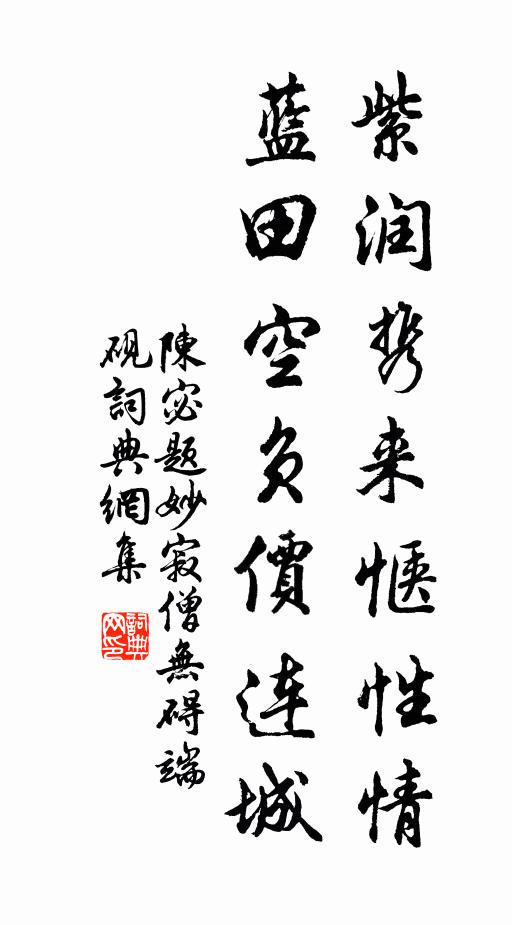 紫润携来惬性情
蓝田空负價连城
陳宓题妙寂僧無碍端
砚詞典網集
詞典网印